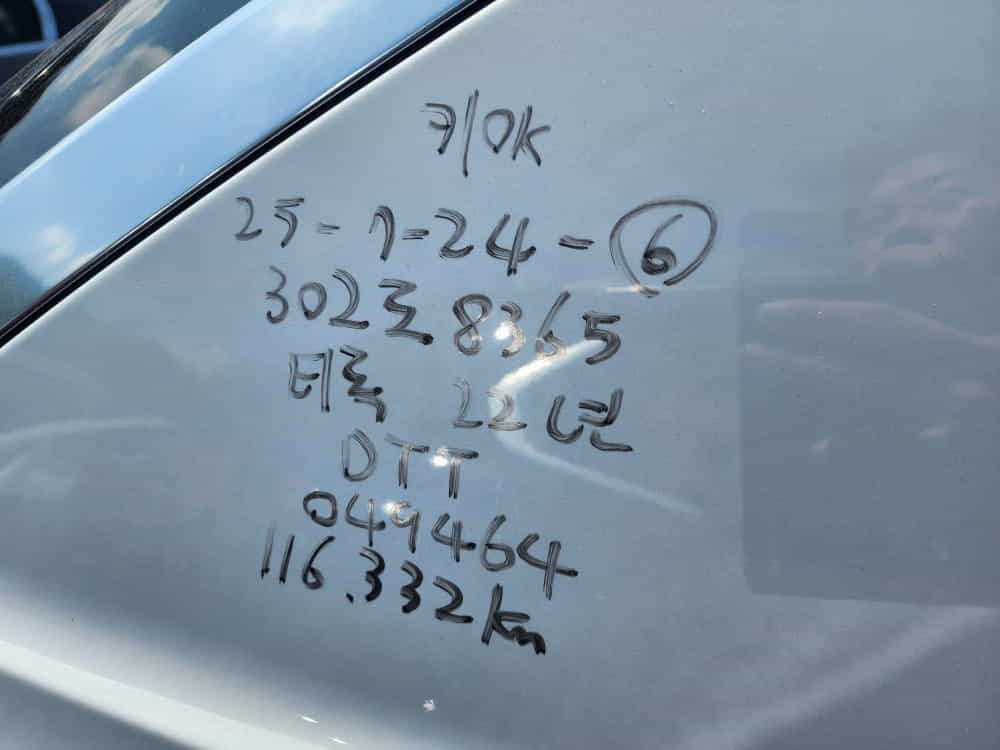 키OK
25-7-24-⑥
302로8365
티록 22년
DTT
049464
116.332km